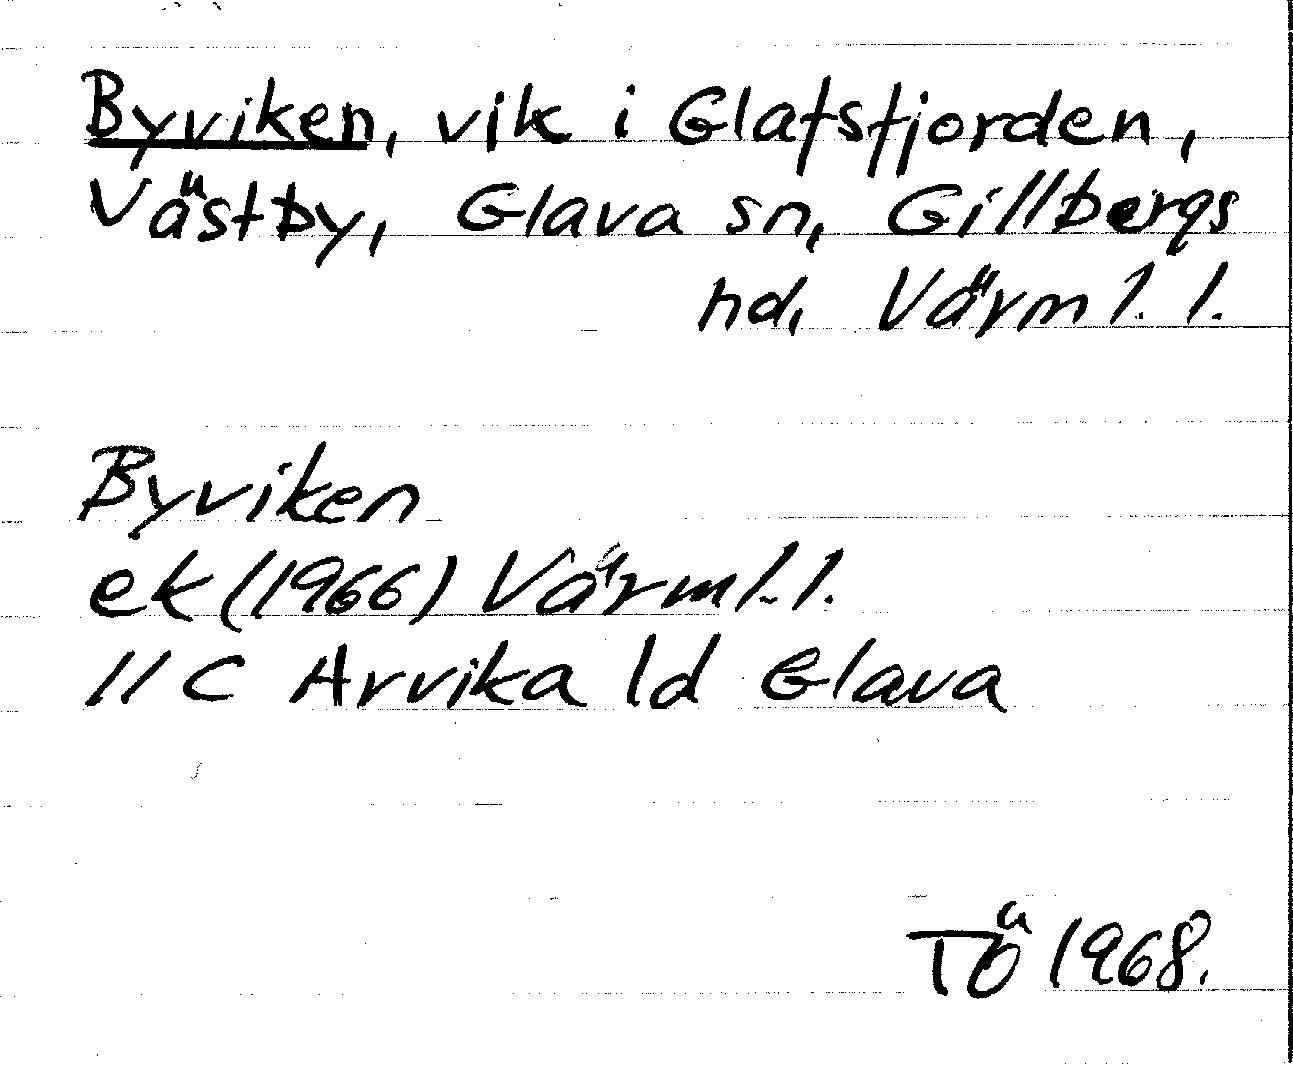 Byviken, vik i Glafsfjorden,
Västby, Glava sn, Gillbergs
hd, Värml. l.
Byviken
ek (1966) Värml. l.
11C Arvika ld Glava
TÖ 1968.